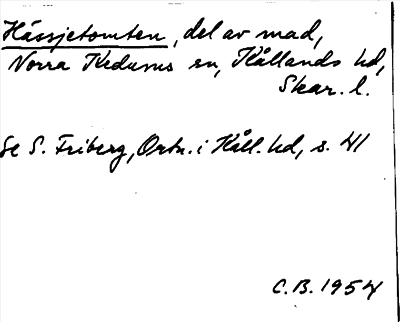 Hässjetomten, del av mad,
Norra Kedums sn, Kållands hd,
Skar. l.
Se S. Friberg, Ortn. i Kåll. hd, s. 41
C.B. 1954